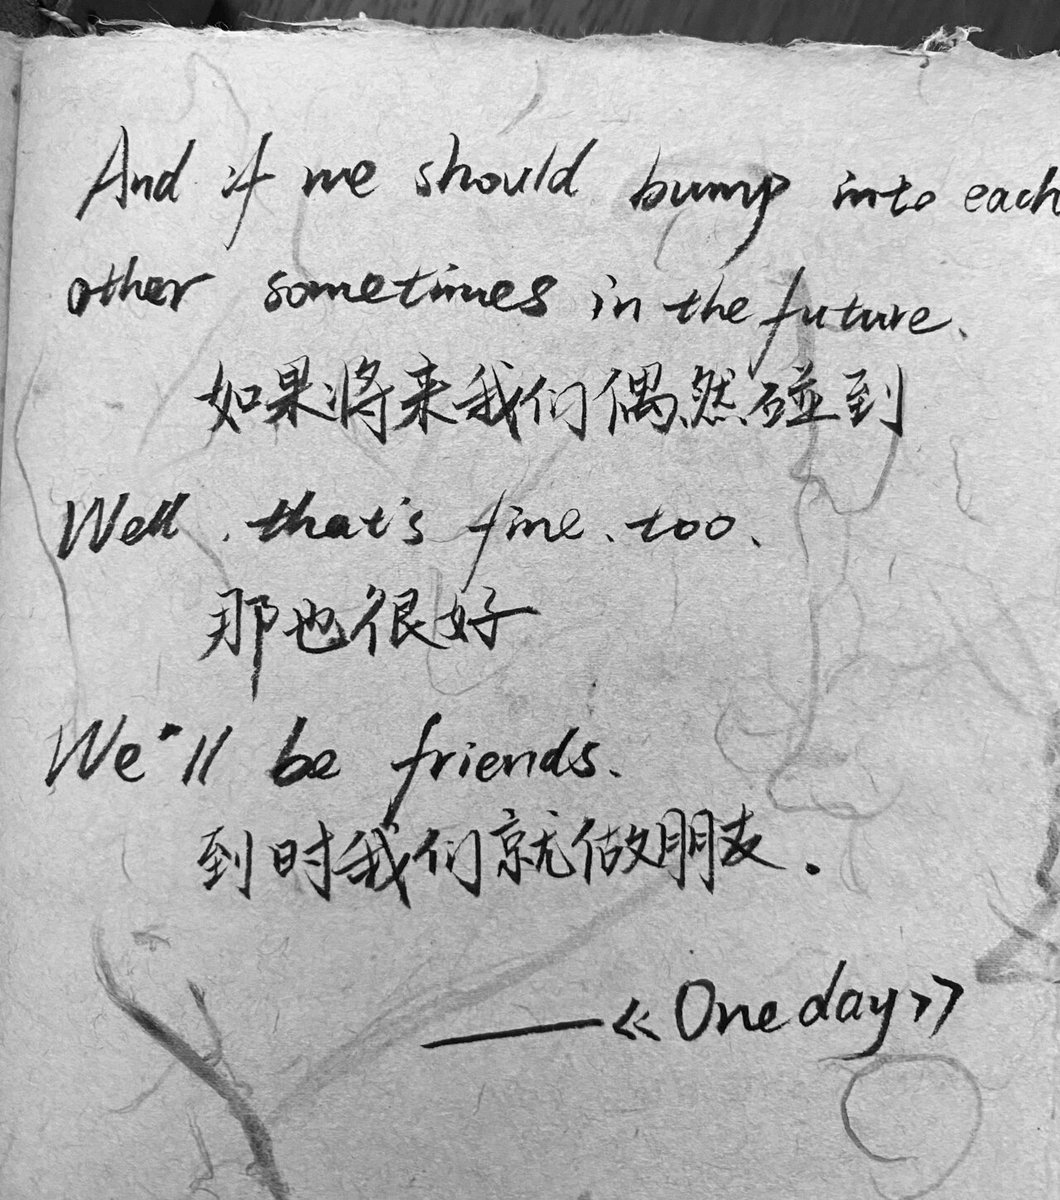 And if we should bump into each
other sometimes in the future.
如果将来我们偶然碰到
Well, that's fine, too.
那也很好
We'll be friends.
到时我们就做朋友.
——《One day》